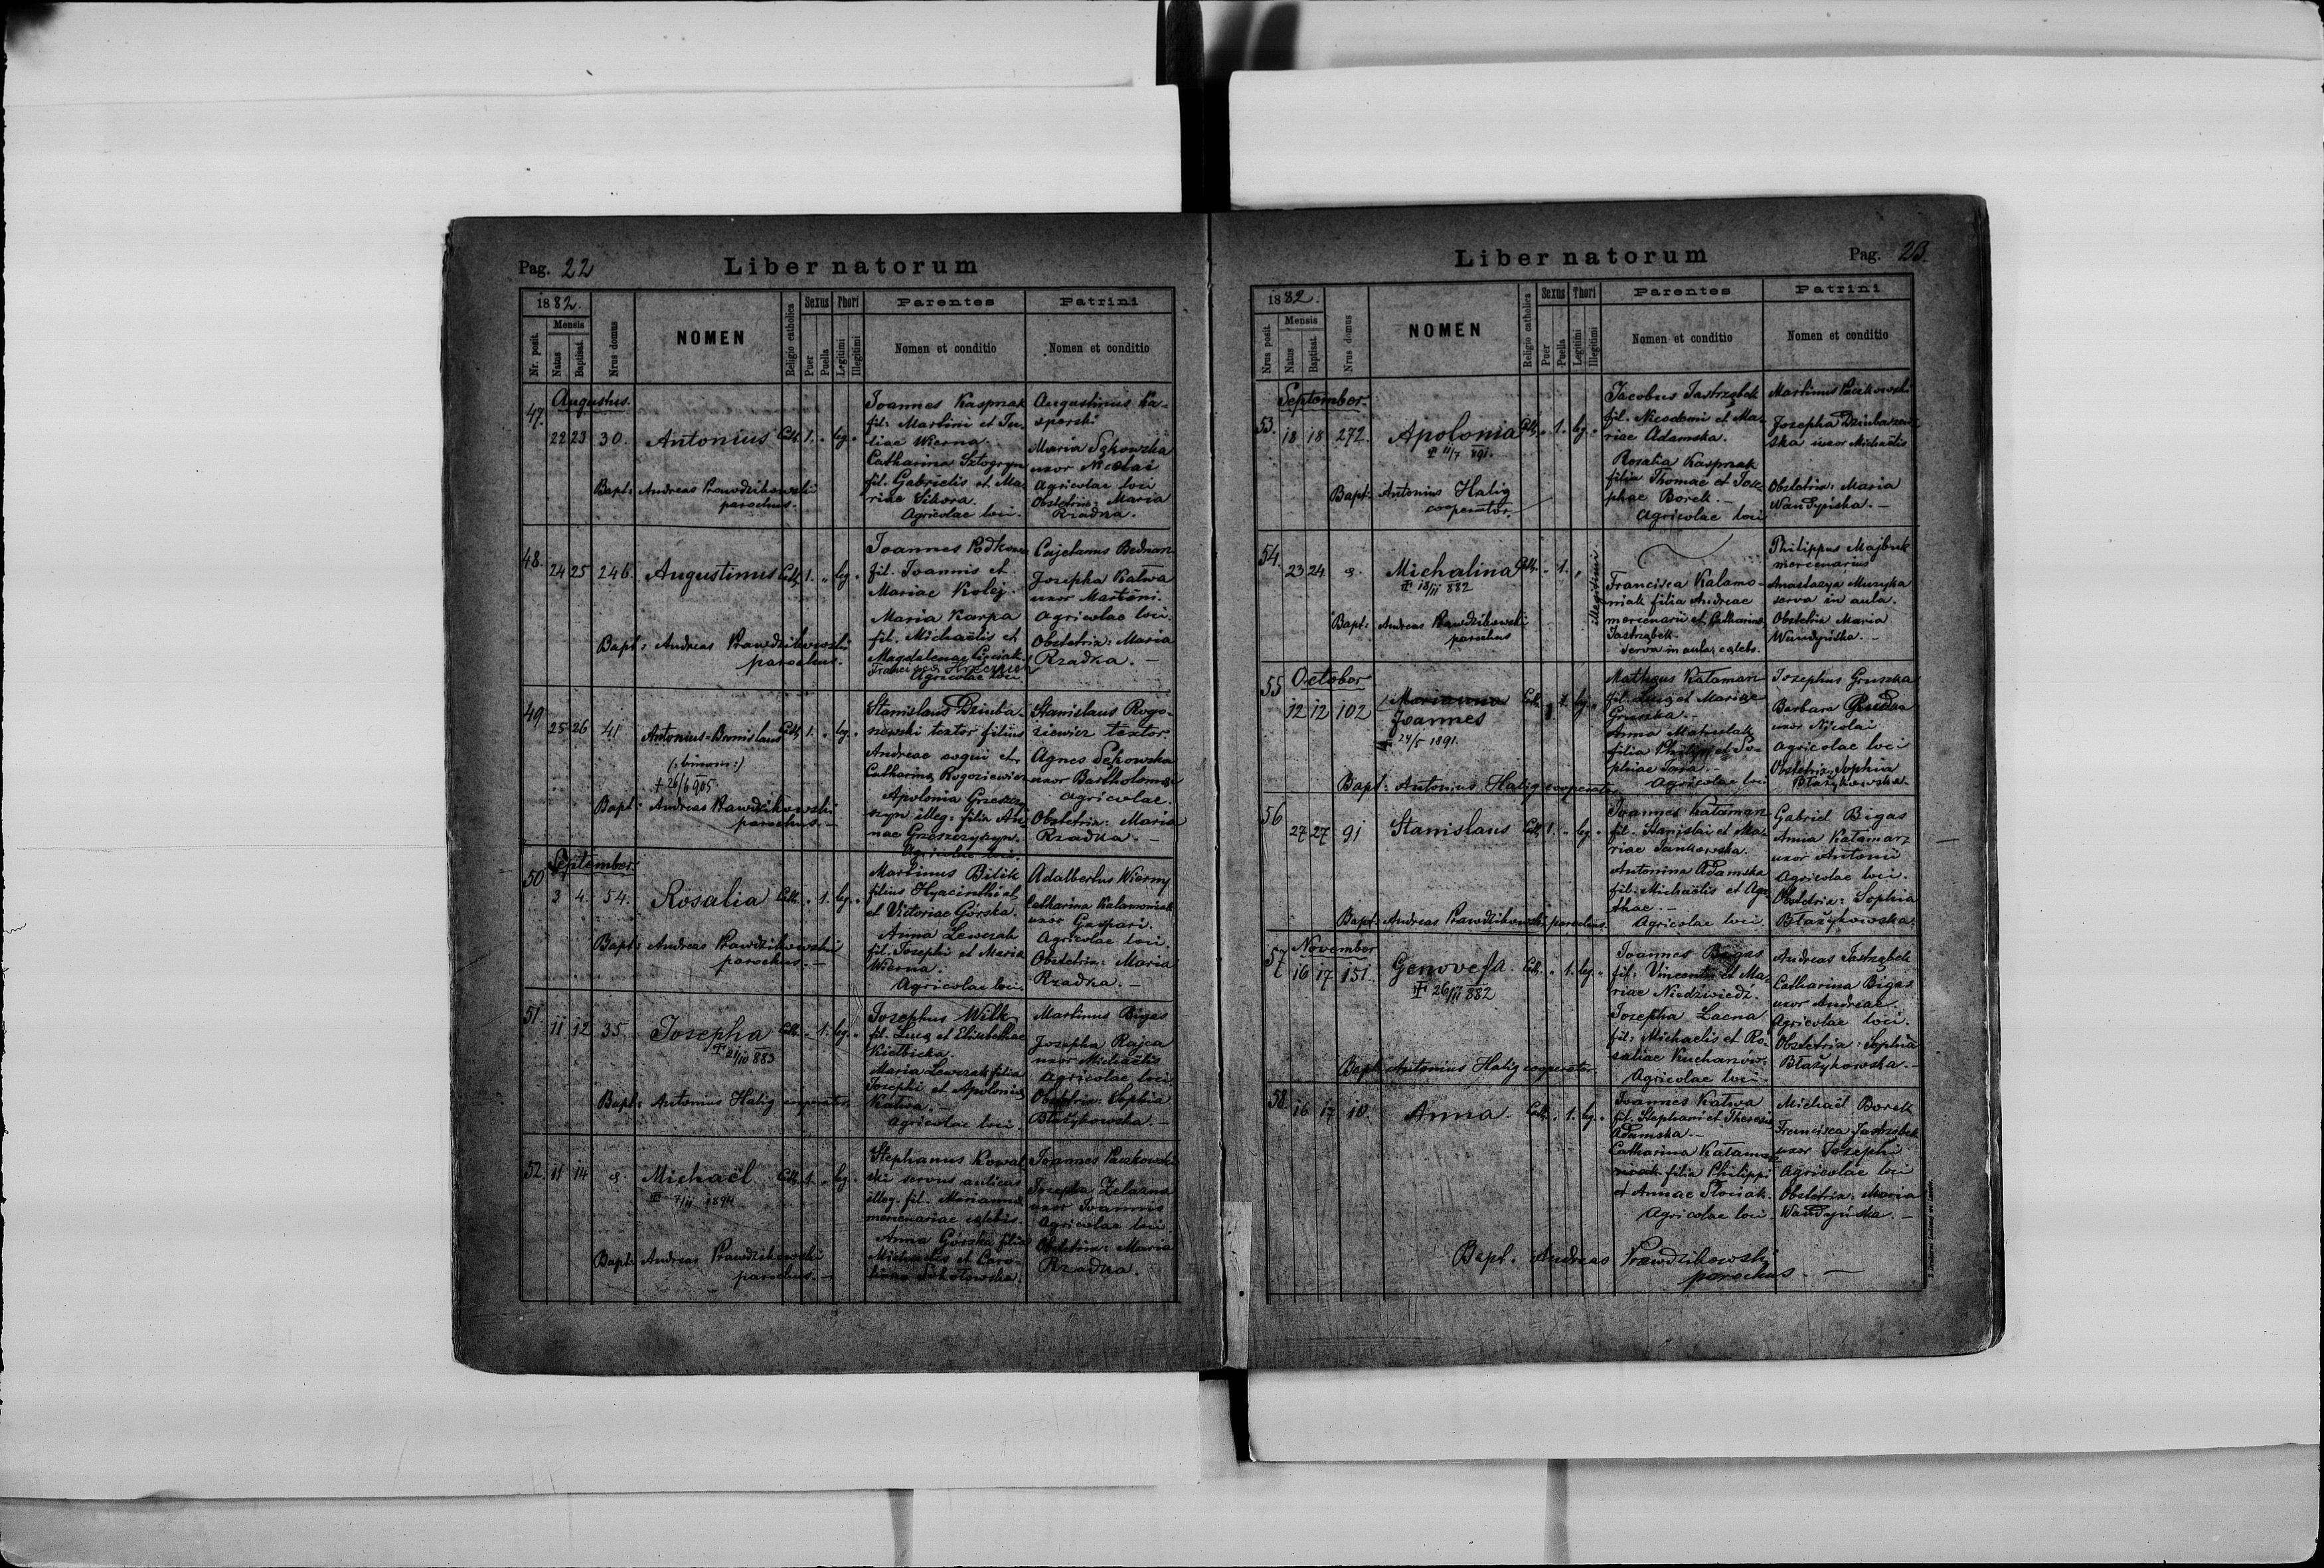 Pag. 22
Liber natorum
1882.
Nr. posit.
Mensis
Natus
Baptisat.
Nrus domus
NOMEN
Religio catholica
Sexus
Puer
Puella
Thori
Legitimi
Illegitimi
Parentes
Nomen et conditio
Patrini
Nomen et conditio
Augustus.
47. 22 23 30. Antonius Cath. 1. " leg. "
Bapt: Andreas Prawdzikowski
parochus.
Joannes Kasprzak
fil. Martini et Ju-
liae Wierna.
Catharina Sztogryn
fil. Gabrielis et Ma-
riae Sikora.
Agricolae loci.
Augustinus Ka-
sperski
Maria Sękowska
uxor Nicolai
Agricolae loci
Obstetrix: Maria
Rzadka.
48. 24 25 246. Augustinus Cath. 1. " leg. "
Bapt: Andreas Prawdzikowski
parochus.
Joannes
fil. Joannis et
Mariae Kolej.
Maria Karpa
fil. Michaëlis et
Magdalenae
Agricolae loci.
Cajetanus Bednarz
Josepha Katwa
uxor Martini.
Agricolae loci.
Obstetrix: Maria
Rzadka. -
49 25 26 41 Antonius-Bronislaus Cath. 1. " leg. "
(:binom:)
+ 26/6 905
Bapt: Andreas Prawdzikowski
parochus. -
Stanislaus Dziuba-
szewski textor filius
Andreae et
Catharina Rogoziewicz
Apolonia Grzeszczy-
szyn illeg: filia An-
nae Grzeszczyszyn.
Agricolae loci.
Stanislaus Rogo-
ziewicz textor.
Agnes Sękowska
uxor Bartholomei
Agricolae.
Obstetrix: Maria
Rzadka. -
September.
50 3 4. 54. Rosalia Cath. " 1. leg. "
Bapt: Andreas Prawdzikowski
parochus. -
Martinus Bilik
filius Hyacinthi et
et Victoriae Górska.
Anna Lewczak
fil. Josephi et Maria
Wierna.
Agricolae loci.
Adalbertus Wierny
Catharina Kalamoniak
uxor Gaspari.
Agricolae loci.
Obstetrix: Maria
Rzadka. -
51. 11 12 35 Josepha Cath. " 1. leg. "
883
Bapt: Antonius Halig cooperator.
Josephus Wilk
fil. Lucae et Elisabethae
Kiełbicka.
Maria Lewczak filia
Josephi et Apoloniae
Katwa. -
Agricolae loci.
Martinus Bigas
Josepha Rajca
uxor Michaëlis
Agricolae loci
Obstetrix: Sophia
Błażykowska. -
52. 11 14 8. Michaël Cath. 1. " leg. "
7/II 1894
Bapt: Andreas Prawdzikowski
parochus. -
Stephanus Kowal-
ski servus aulicus
illeg. fil. Mariannae
mercenariae caelebis.
Anna Górska filia
Michaëlis et Caro-
linae Sokołowska.
Joannes Paczkowski
Josepha Żelazna
uxor Joannis
Agricolae loci
Obstetrix: Maria
Rzadka.
Liber natorum
Pag. 23.
1882.
Nrus posit.
Mensis
Natus
Baptisat.
Nrus domus
NOMEN
Religio catholica
Sexus
Puer
Puella
Thori
Legitimi
Illegitimi
Parentes
Nomen et conditio
Patrini
Nomen et conditio
September
53. 18 18 272. Apolonia Cath. " 1. leg. "
11/7 891.
Bapt: Antonius Halig
cooperator.
Jacobus Jastrząbek
fil. Nicodemi et Ma-
riae Adamska.
Rosalia Kasprzak
filia Thomae et Jose-
phae Borek. -
Agricolae loci
Martinus Paczkowski
Josepha Dziubaszew-
ska uxor Michaëlis
Obstetrix: Maria
Wandyńska. -
54. 23 24 8. Michalina Cath. " 1. " illegitimi
18/II 882
Bapt: Andreas Prawdzikowski
parochus
Francisca Kalamo-
niak filia Andreae
mercenarii et Catharina
Jastrząbek.
Serva in aula, caelebs.
Philippus Majbruk
mercenarius
Anastazya Muzyka
serva in aula.
Obstetrix Maria
Wandyńska. -
October
55 12 12 102 Marianna Cath. leg. "
Joannes
24/5 1891.
Bapt: Antonius Halig cooperator
Matheus Katamarz
fil. Lucae et Mariae
Gruszka. -
Anna
filia Philippi et So-
phiae
Agricolae loci
Josephus Gruszka
Barbara
uxor Nicolai
Agricolae loci
Obstetrix: Sophia
Błażykowska.
56 27 27 91 Stanislaus Cath. 1. " leg. "
Bapt: Andreas Prawdzikowski parochus.
Joannes Katamarz
fil. Stanislai et Ma-
riae Jankowska.
Antonina Adamska
fil. Michaëlis et Aga-
thae. -
Agricolae loci.
Gabriel Bigas
Anna Katamarz
uxor Antonii
Agricolae loci.
Obstetrix: Sophia
Błażykowska.
November
57 16 17 151. Genovefa. Cath. " 1. leg. "
26/II 882
Bapt: Antonius Halig cooperator
Joannes Bigas
fil. Vincentii et Ma-
riae Niedźwiedź.
Josepha Łacna
fil: Michaelis et Ro-
saliae Kucharów.
Agricolae loci.
Andreas Jastrząbek
Catharina Bigas
uxor Andreae.
Agricolae loci.
Obstetrix: Sophia
Błażykowska. -
58. 16 17 10. Anna. Cath. " 1. leg. "
Joannes Katwa
fil. Stephani et Theresiae
Adamska. -
Catharina Katamar-
filia Philippi
et Annae Słowiak.
Agricolae loci.
Michaël Borek
Francisca Jastrząbek
uxor Josephi
Agricolae loci
Obstetrix: Maria
Wandyńska. -
Bapt. Andreas Prawdzikowski
parochus. -